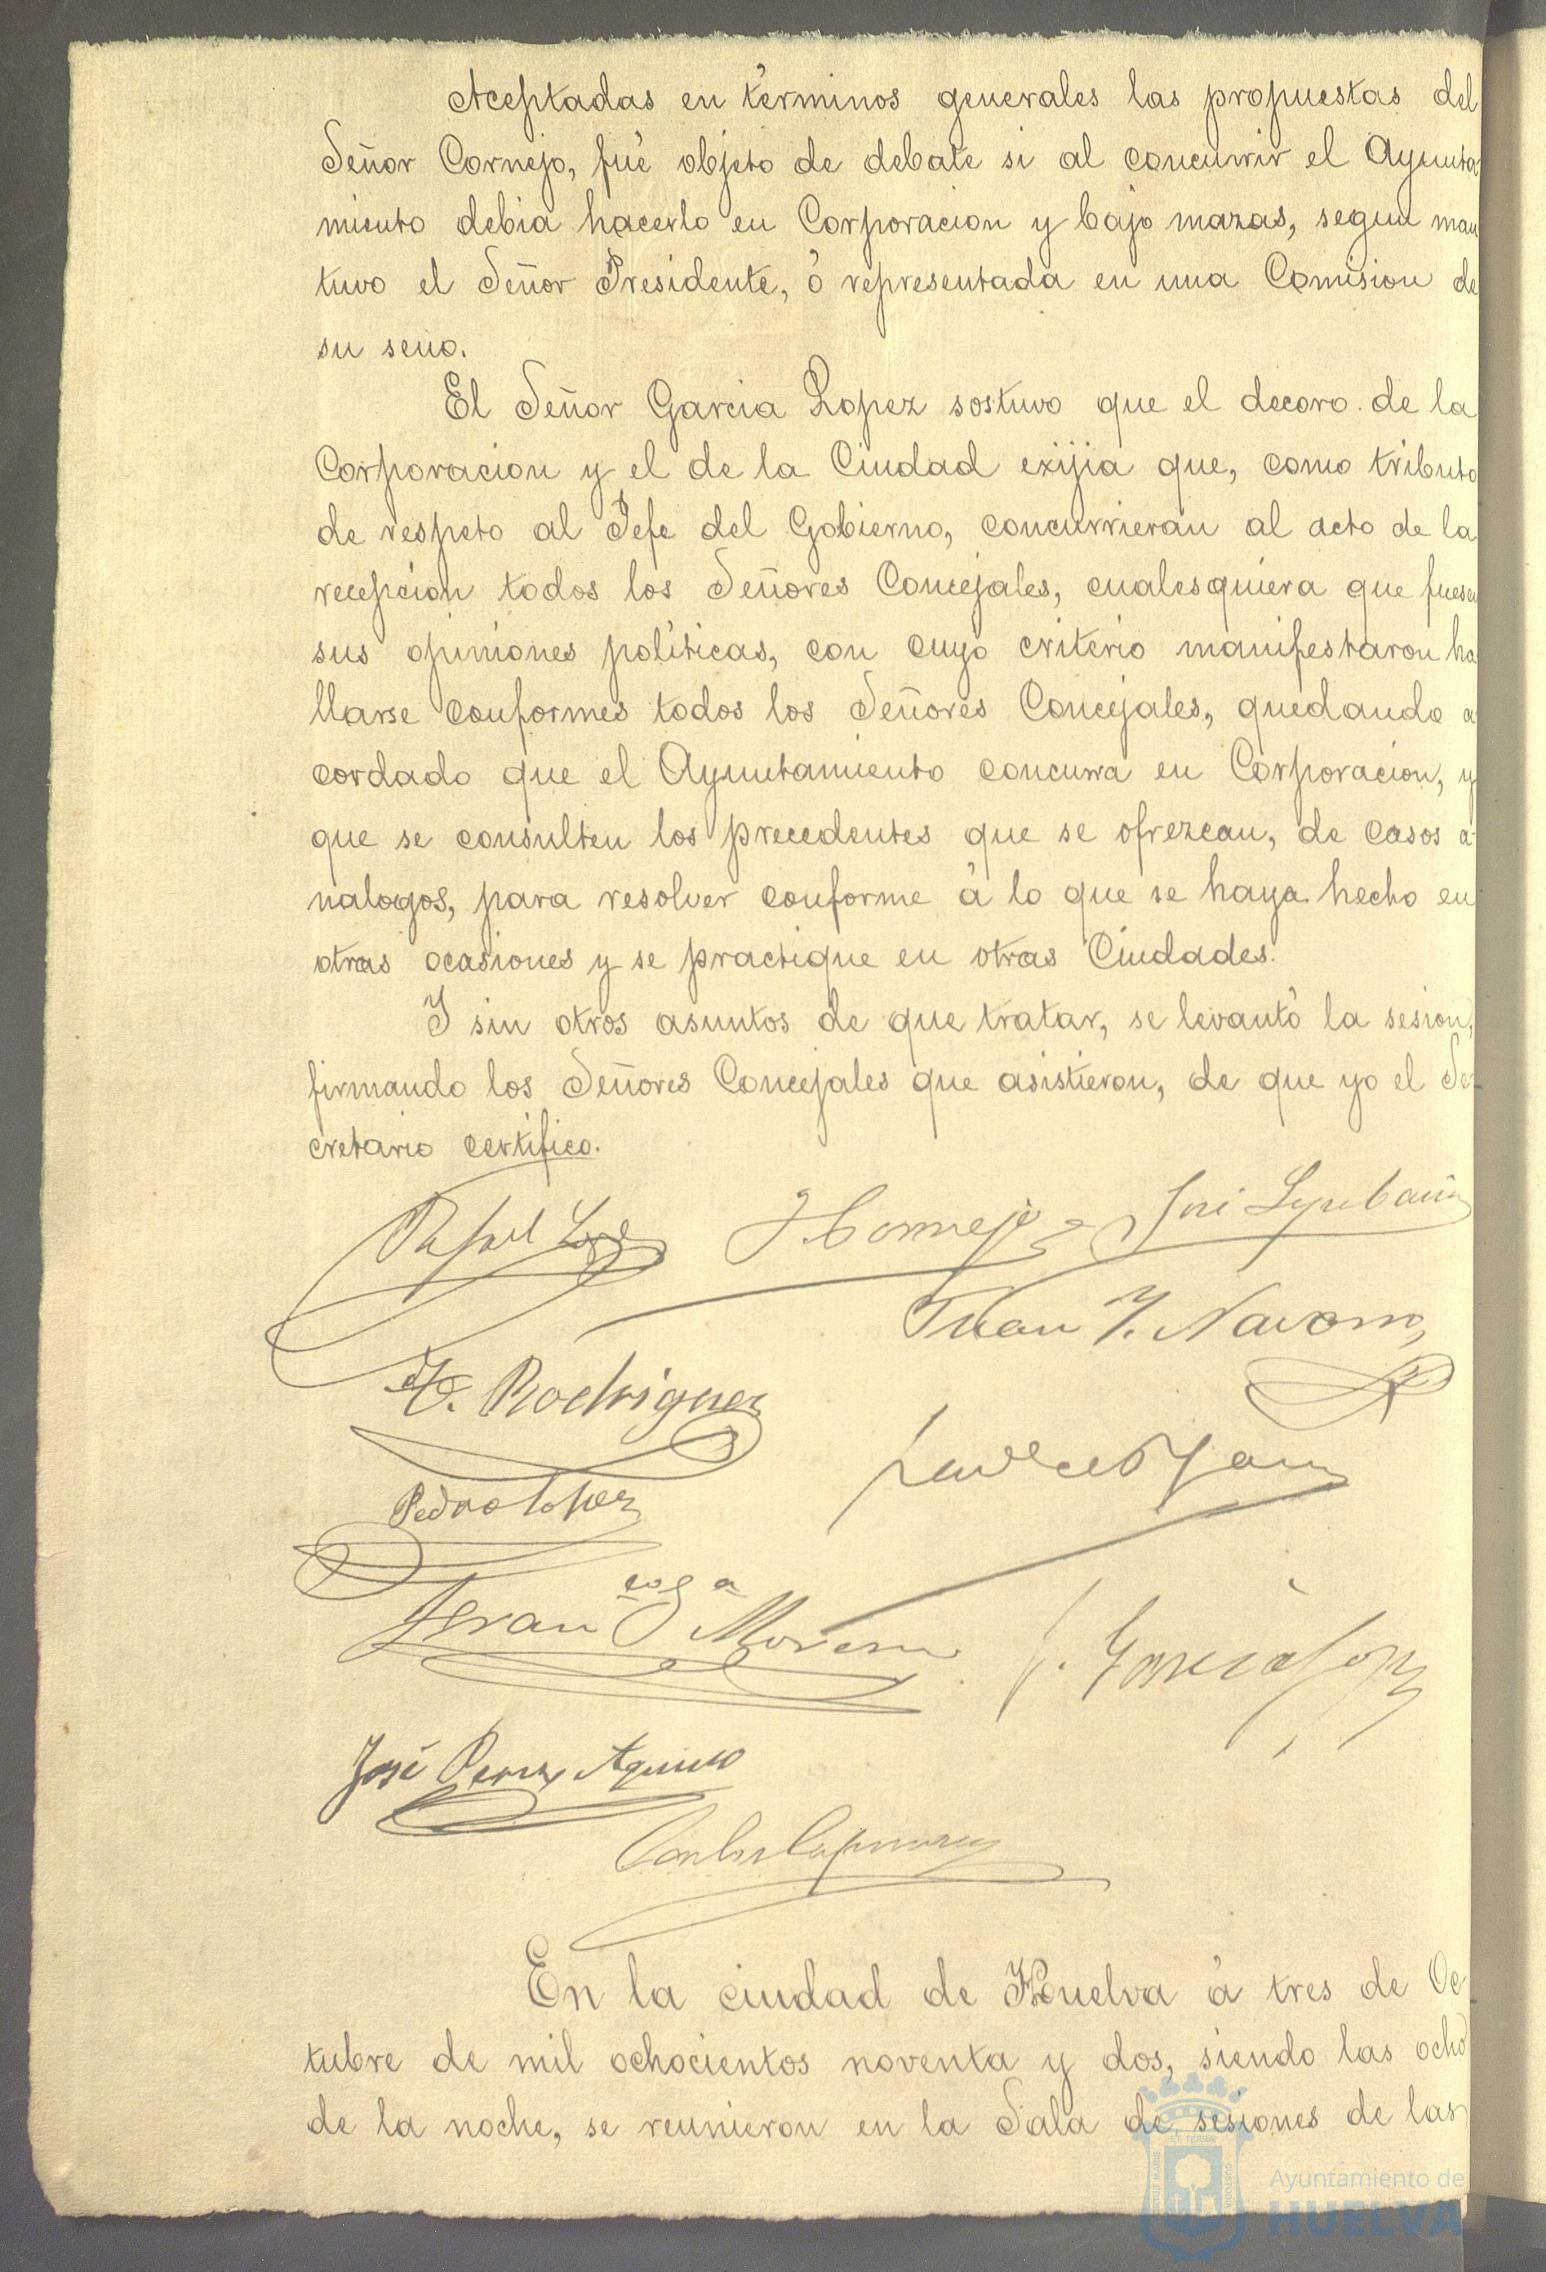 Aceptadas en términos generales las propuestas del
Señor Cornejo, fué objeto de debate si al concurrir el Ayunta-
miento debia hacerlo en Corporacion y bajo mazas, segun man
tuvo el Señor Presidente, ó representada en una Comision de
su seno.
El Señor Garcia Lopez sostuvo que el decoro de la
Corporacion y el de la Ciudad exijia que, como tributo
de respeto al Jefe del Gobierno, concurrieran al acto de la
recepcion todos los Señores Concejales, cualesquiera que fuesen
sus opiniones políticas, con cuyo criterio manifestaron ha
llarse conformes todos los Señores Concejales, quedando a
cordado que el Ayuntamiento concurra en Corporacion, y
que se consulten los precedentes que se ofrezcan, de casos a-
nalogos, para resolver conforme á lo que se haya hecho en
otras ocasiones y se practique en otras Ciudades.
Y sin otros asuntos de que tratar, se levantó la sesion,
firmando los Señores Concejales que asistieron, de que yo el Se-
cretario certifico.
Rafael Lopez
Cornejo
José
Juan Y. Navarro
Rodriguez
Pedro Lopez
Fran^co G^a Moreno
J. Garcia Lopez
José Perez Aquino
En la ciudad de Huelva á tres de Oc-
tubre de mil ochocientos noventa y dos, siendo las ocho
de la noche, se reunieron en la Sala de sesiones de las
Ayuntamiento de
HUELVA